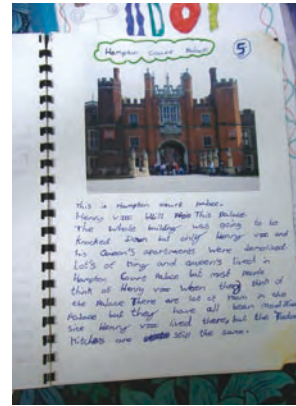 Hampton Court Palace
5
This is Hampton court palace.
Henry v111 This Palace
The whole building was going to be
knocked down but only Henry v111 and
his Queen's apartments were demolised
Lot's of King and queen's lived in
Hampton Court Palace but most people
think of Henry v111 when they think of
the Palace There are lot of room in the
Palace but they have all been modified
Henry v111 lived there, but the Tudor
Kitches are still the same.